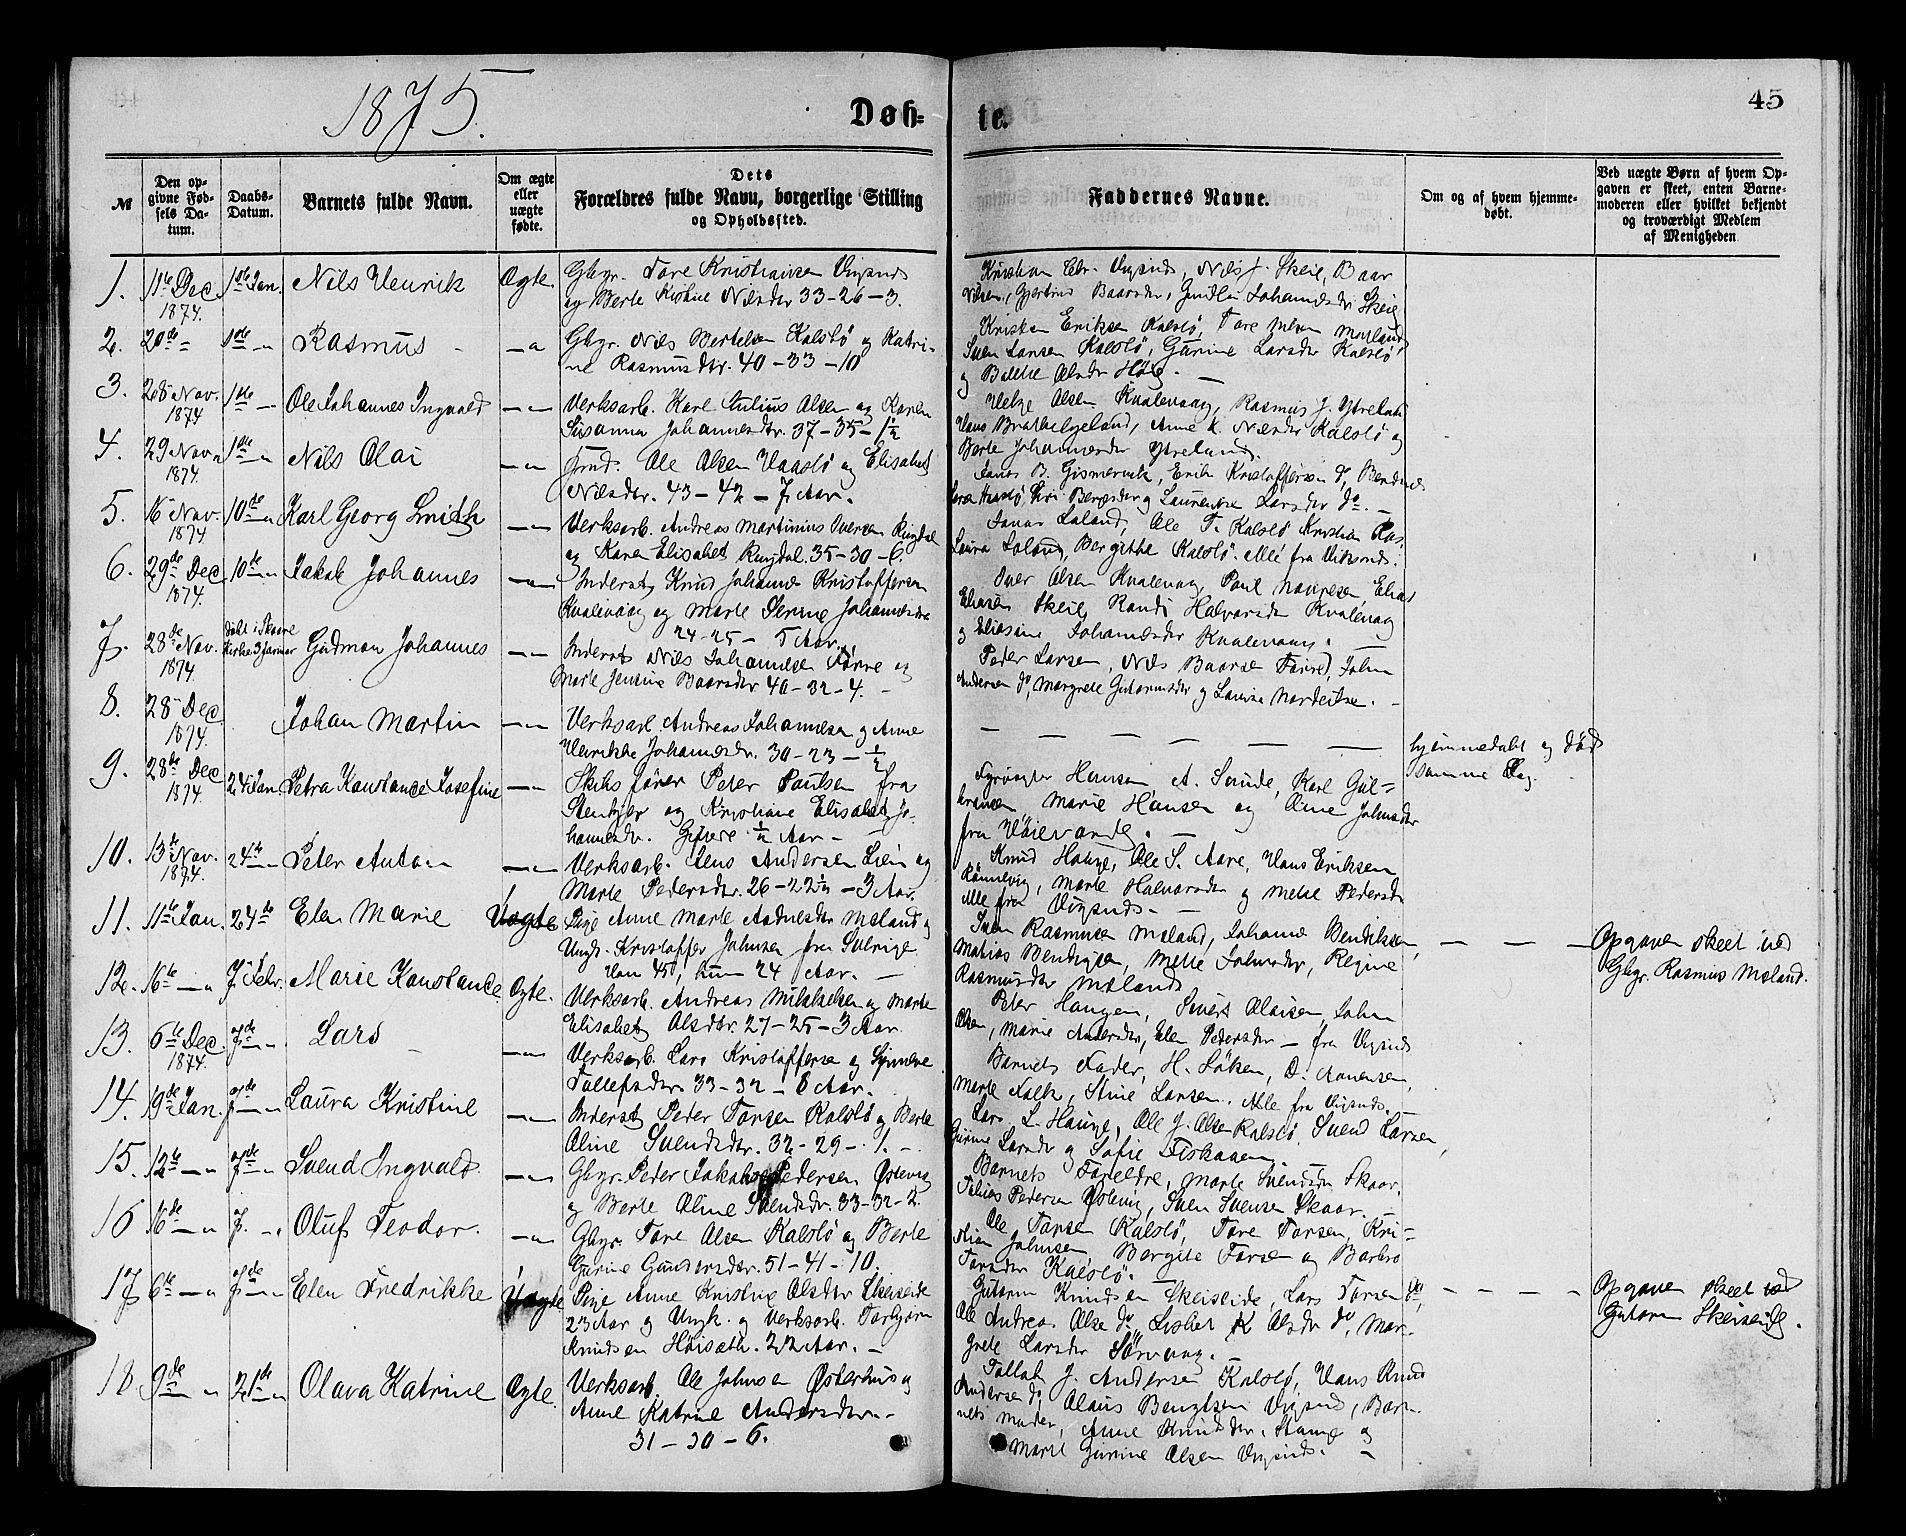 1875.
Døb-
te.
45
№
Den op-
givne Fød-
sels Da-
tum.
Daabs-
Datum.
Barnets fulde Navn.
Om ægte
eller
uægte
fødte.
Dets
Forældres fulde Navn, borgerlige Stilling
og Opholdssted.
Faddernes Navne.
Om og af hvem hjemme-
døbt.
Ved uægte Børn af hvem Op-
gaven er skeet, enten Barne-
moderen eller hvilket bekjendt
og troværdigt Medlem
af Menigheden
1.
11te Dec.
1874.
1ste Jan.
Nils Henrik
Ægte.
Gbgr. Tore Kristiansen Vigsnes
og Berte Kistine Nilsdtr 33-26-3.
Nilsen, Gjertrud Baarsdtr, Johannesdtr Skeie
2.
20de
1ste
Rasmus
Gbgr. Nils Bertelsen Kalslö og Katri-
ne Rasmusdtr. 40-33-10
Kristen Eriksen Kalslö, Tore
Sven Larsen Kalslö, Gurine Larsdtr Kalslö
3.
28 Nov.
1874
1ste
Ole Johannes Ingvald
Verksarb. Karl Julius Olsen og Karen
Susanna Johannesdtr. 37-35-1½
Helge Olsen Kvalevaag, Rasmus J. Ytreland
Berte Johannesdtr Ytreland.
4.
29 Nov.
1874
1ste
Nils Olai
Ole Olsen Vaaslö og Elisabet
Nilsdtr. 43-42-7 Aar.
Jonas B. Gismervik, Erik Kristoffersen do,
5.
16 Nov.
1874
10de
Karl Georg Smith
Verksarb. Andreas Martinius Iversen Ringdal
og Karen Elisabet Ringdal. 35-30-6.
Jonas Loland, Ole T. Kalslö Kristian
Laura Loland, Bergitha Kalslö. Alle fra Viksnes.
6.
29de Dec
1874.
10de
Jakob Johannes
Inderst Knud Johannes Kristoffersen
Kvalevaag og Marte Serine Johannesdtr
24-25- 5 Aar.
Iver Olsen Kvalevaag, Paul
Skeie, Randi Halvorsdtr Kvalevaag
og Eliasine Johannesdtr Kvalevaag.
7.
28de Nov.
1874
Döbt i Skaare
Kirke 3 Januar
Gudmon Johannes
Inderst Nils Johannesen Förre og
Marte Jensine Baarsdtr 40-32-4.
Peder Larsen, Nils Baarsen Förre, John
Andersen do, Margrete Gutormsdtr og
8.
28 Dec
1874.
Johan Martin
Verksarb. Andreas Johannesen og Anne
Henrikke Johannesdtr. 30-23-½
hjemmedöbt og död
samme Dag.
9.
28de Dec
1874.
24 Jan
Petra Konstance Josefine
Skibsförer Peter Paulsen fra
og Kristiane Elisabet Jo-
hannesdtr. Givere ½ Aar
Fyrvogter Hansen A. Sunde, Karl Gul-
bransen, Marie Hansen og Aline Johnsdtr
fra Höievarde.
10.
13de Nov.
1874.
24de
Peter Anton
Verksarb. Jens Andersen Lien og
Marte Pedersdtr. 26-22½-3 Aar.
Knud Hauge, Ole S. Aare, Hans Eriksen
Rönnevig, Marte Halvorsdtr og Mette Pedersdtr
Alle fra Vigsnes.
11.
11te Jan.
24de
Elen Marie
Uægte
Pige Anne Marte Aadnesdtr Meland og
Ungk. Kristoffer Johnsen fra Sverige
Han 45, hun 24 Aar.
Sven Rasmusen Meland, Johannes Bendiksen,
Matias Bendiksen, Mette Johnsdtr, Regine
Rasmusdtr Meland
Opgaven skeet ved
Gbgr. Rasmus Meland.
12.
16te
7 Febr.
Marie Konstance
Ægte.
Verksarb. Andreas Mikkelsen og Marte
Elisabet Olsdtr. 27-25-3 Aar
Peter Haugen, Sivert Olaisen, John
Olsen, Marie Andersdtr, Elen Pedersdtr - fra Vigsnes
13.
6te Dec.
1874.
7de
Lars
Verksarb. Lars Kristoffersen og
Tollefsdtr 33-32- 8 Aar.
Barnets Fader, H. Löken, D. Aanensen,
Marte Falk, Stine Larsen. Alle fra Vigsnes.
14.
19de Jan.
7de
Laura Kristine
Inderst Peder Torsen Kalslö og Berte
Oline Svendsdtr. 32-29-1.
Lars L. Hauge, Ole J. Olsen Kalslö, Svend Larsen,
Gurine Larsdtr og Sofie Fiskaaen
15.
12te
7de
Svend Ingvald.
Gbgr. Peder Jakob Pedersen Östevig
og Berte Oline Svendsdtr. 33-32-2
Barnets Foreldre, Marte Svendsdtr Skaar,
Tobias Pedersen Östevig, Sven Svensen Skaar.
16
16de
7.
Oluf Teodor.
Gbgr. Tore Olsen Kalslö og Berte
Gurine Gundersdtr. 51-41-10.
Ole Torsen Kalslö, Tore Torsen, Kri-
stian Johnsen, Bergite Torsen og Barbro
Torsdtr Kalslö.
17
6te
7de
Elen Fredrikke
Uægte
Pige Anne Kristine Olsdtr Skeiseide
23 Aar og Ungk. og Verksarb. Torbjörn
Knudsen Höisæth. 22 Aar.
Gutorm Knudsen Skeiseide, Lars Torsen do,
Ole Andreas Olsen do, Lisbet K Olsdtr do, Mar-
grete Larsdtr Sörvaag.
Opgaven skeet ved
Gutorm Skeiseide.
18
9de
21de
Olava Katrine
Ægte.
Verksarb. Ole Johnsen Österhus og
Anne Katrine Andersdtr.
31-30-6.
Tollak J. Andersen Kalslö, Hans Knud
Andersen do, Olaus Bengtsen Vigsnes, Bar-
nets Moder, Anne Knudsdtr. Stange og
Marte Gurine Olsen Vigsnes.